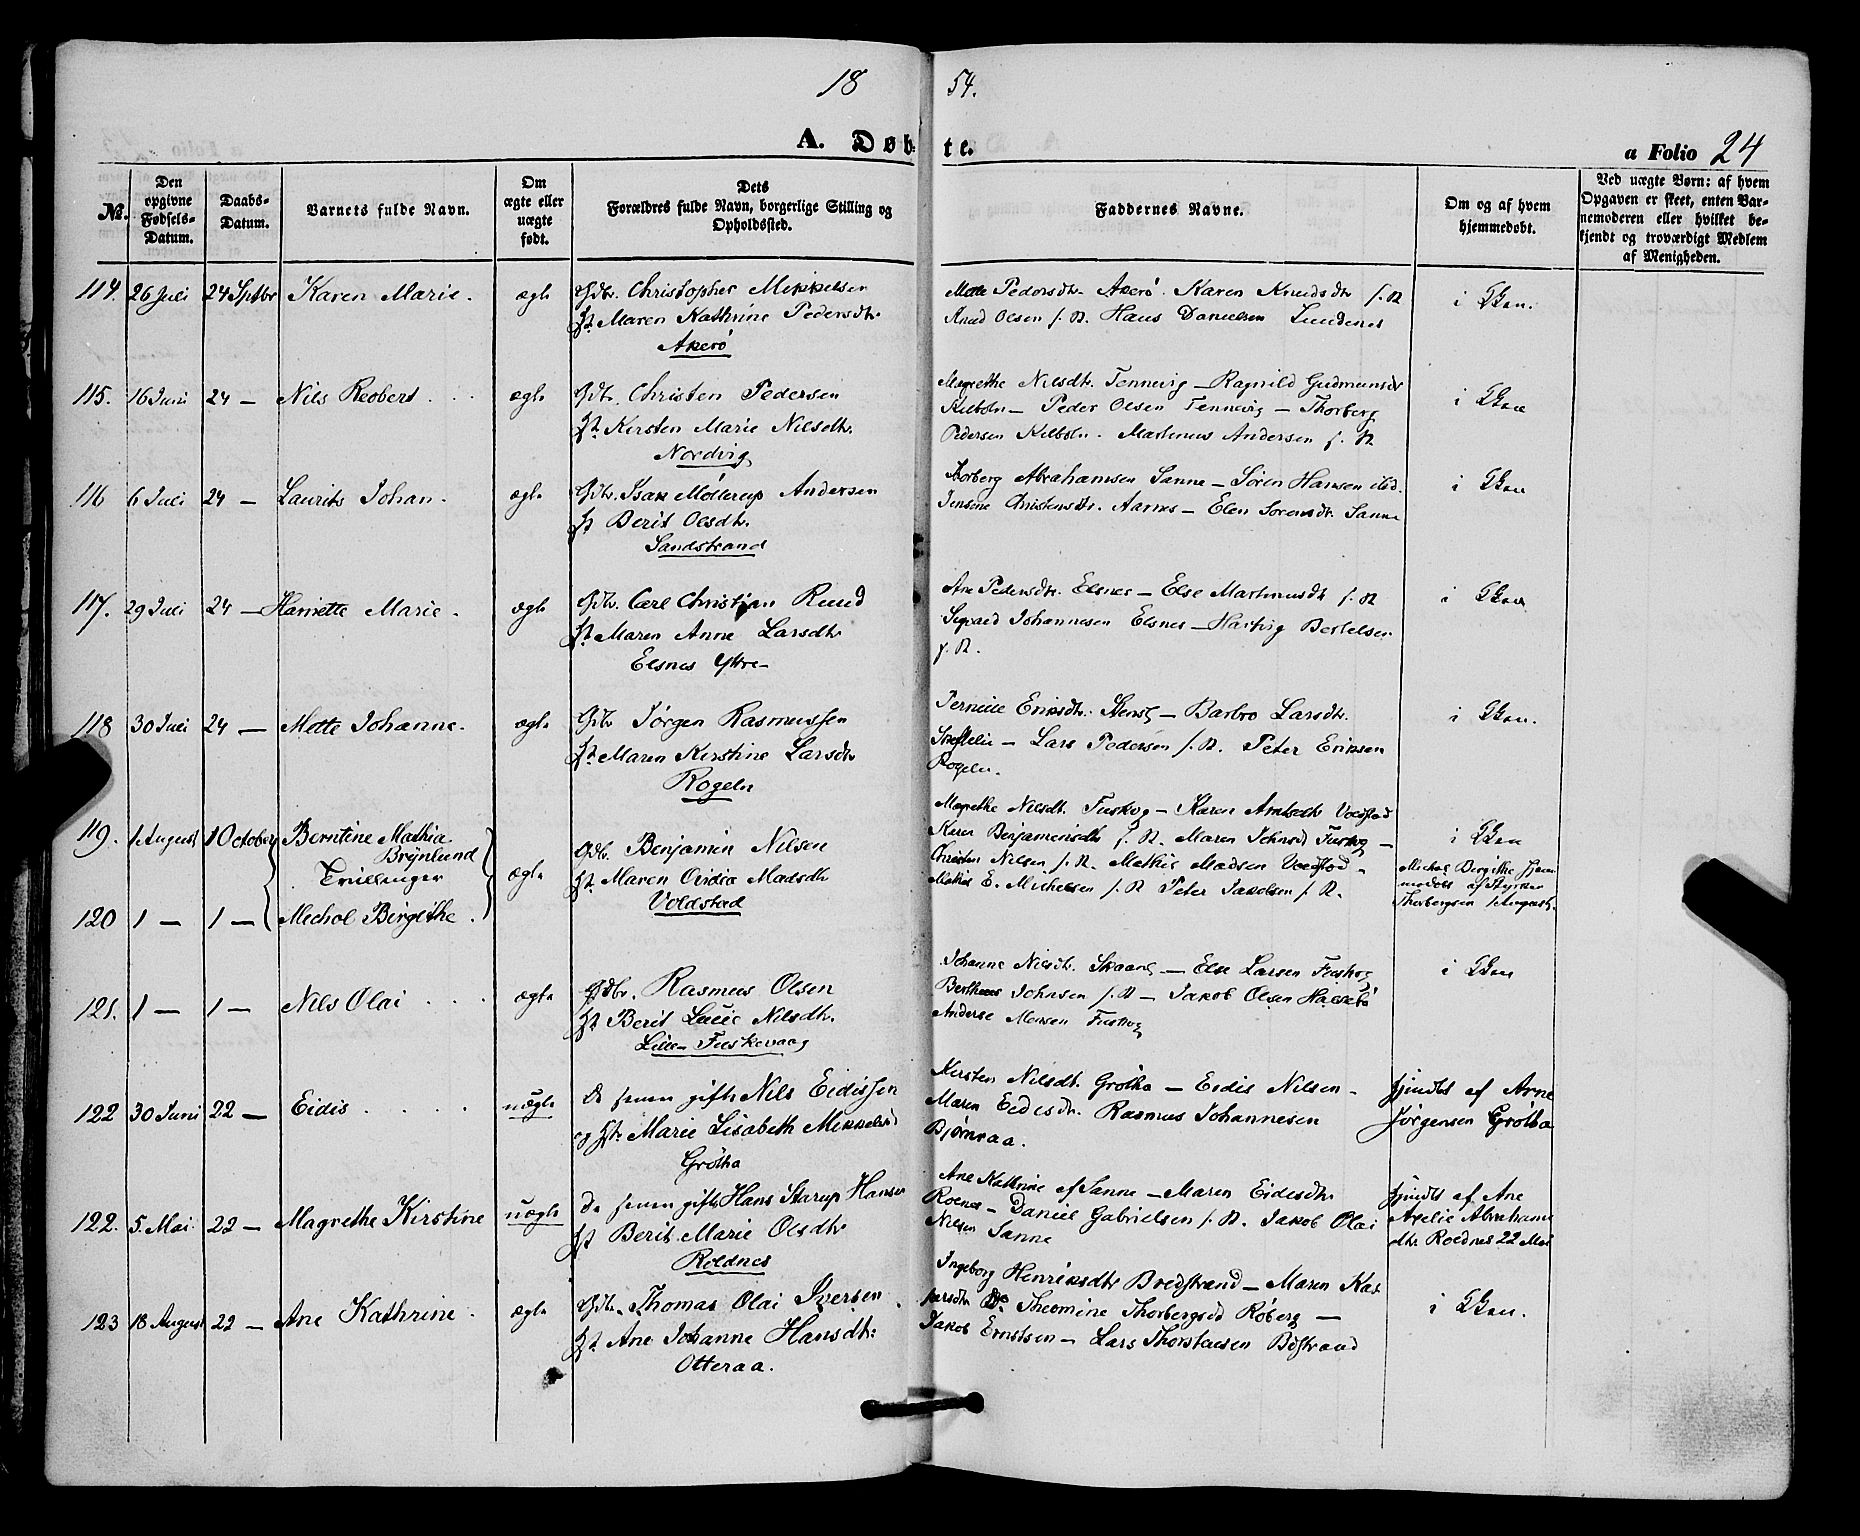 18 54.
A. Døbte.
a Folio 24
No.
Den opgivne Fødsels-Datum.
Daabs-Datum.
Barnets fulde Navn.
Om ægte eller uægte født.
Dets Forældres fulde Navn, borgerlige Stilling og Opholdssted.
Faddernes Navne.
Om og af hvem hjemmedøbt.
Ved uægte Børn: af hvem Opgaven er skeet, enten Barnemoderen eller hvilket bekjendt og troværdigt Medlem af Menigheden.
114. 26 Juli 24 Septbr Karen Marie. ægte
Gdbr. Christopher Mikkelsen
H. Maren Kathrine Pedersdtr.
Akerø
Mette Pedersdtr. Akerø. Karen Knudsdtr f. St.
Knud Olsen f. St. Hans Danielsen Lundenes
i Kken.
115. 16 Juni 24 — Nils Reobert ægte
Gdbr. Christen Pedersen
H. Kirsten Marie Nilsdtr.
Nordvig
Magrethe Nilsdtr. Tennevig — Ragnild Gudmunsdr
Kilbotn — Peder Olsen Tennevig — Thorberg
Pedersen Kilbotn. Martinus Andersen f. St.
i Kken
116 6 Juli 24 — Laurits Johan. ægte
Gdbr. Isak Møllerup Andersen
H. Berit Olsdtr.
Sandstrand
Thorberg Abrahamsen Sanne — Sören Hansen ibid.
Jensine Christensdtr. Aarnes — Elen Sorensdtr. Sanne
i Kken
117. 29 Juli 24 — Hanette Marie. ægte
Gdbr. Carl Christian Ruud
H. Maren Anne Larsdtr
Elsnes Yttre
Ane Pedersdtr. Elsnes — Else Martinusdtr f. St
Sivert Johannesen Elsnes — Hartvig Bertelsen
f. St.
i Kken
118 30 Juli 24 — Mette Johanne. ægte
Gdbr Jörgen Rasmussen
H. Maren Kirstine Larsdtr
Rogeln
Pernille Eriksdtr. — Barbro Larsdtr.
— Lars Pedersen f. St. Peter Eriksen
Rogeln.
i Kken.
119. 1 August 1 October Berntine Mathia
Brynlund
Tvillinger
120 1 — 1 — Mechol Birgithe. ægte
Gdbr. Benjamin Nilsen
H. Maren Ovidia Madsdtr
Voldstad
Magrethe Nilsdtr. Fuskog — Karen Voldstad
Karen Benjaminsdtr f. St. Maren Johnsd Fuskog —
Christen Nilsen f. St. Mathis Madsen Voldstad —
Mathis E. Michelsen f. St Peter Jakobsen f. St.
i Kken
Michol Birgithe hjem
medøbt af Styrker
Thorbergsen 1 August.
121. 1 — 1 — Nils Olai ægte
Gdbr. Rasmus Olsen
H. Berit Lucie Nilsdtr.
Lille Fuskevaag
Johanne Nilsdtr. Skaanes — Else Larsen Fuskog
Bertheus Johnsen f. St — Jakob Olsen Halsebø
Anderse Monsen Fuskog
i Kken
122 30 Juni 22 — Eidis uægte
Nils Eidissen
og H. Marie Lisabeth Mikkelsd
Grötha
Kirsten Nilsdt. Grötha — Eidis Nilsen —
Maren Eidesdr. Rasmus Johannesen
Bjørnraa.
hjmdbt af Arne
Jørgensen Grötha
122. 5 Mai 22 — Magrethe Kirstine uægte
Hans Starup Hansen
H Berit Marie Olsdtr
Roldnes
Ane Kathrine af Sanne — Maren Eidesdtr
Rolnes — Daniel Gabrielsen f. St. Jakob Olai
Nilsen Sanne
hjmdbt af Ane
Axelie Abrahams
dtr. Roldnes 22 Mai
123 18 August 22 — Ane Kathrine. ægte
Gdbr. Thomas Olai Iversen
H. Ane Johanne Hansdtr.
Otteraa.
Ingeborg Henriksdtr Bredstrand — Maren Kas
persdtr Do. Theomine Thorbergsd Röberg —
Jakob Ernstsen — Lars Thorstensen Bdstrand
i Kken.